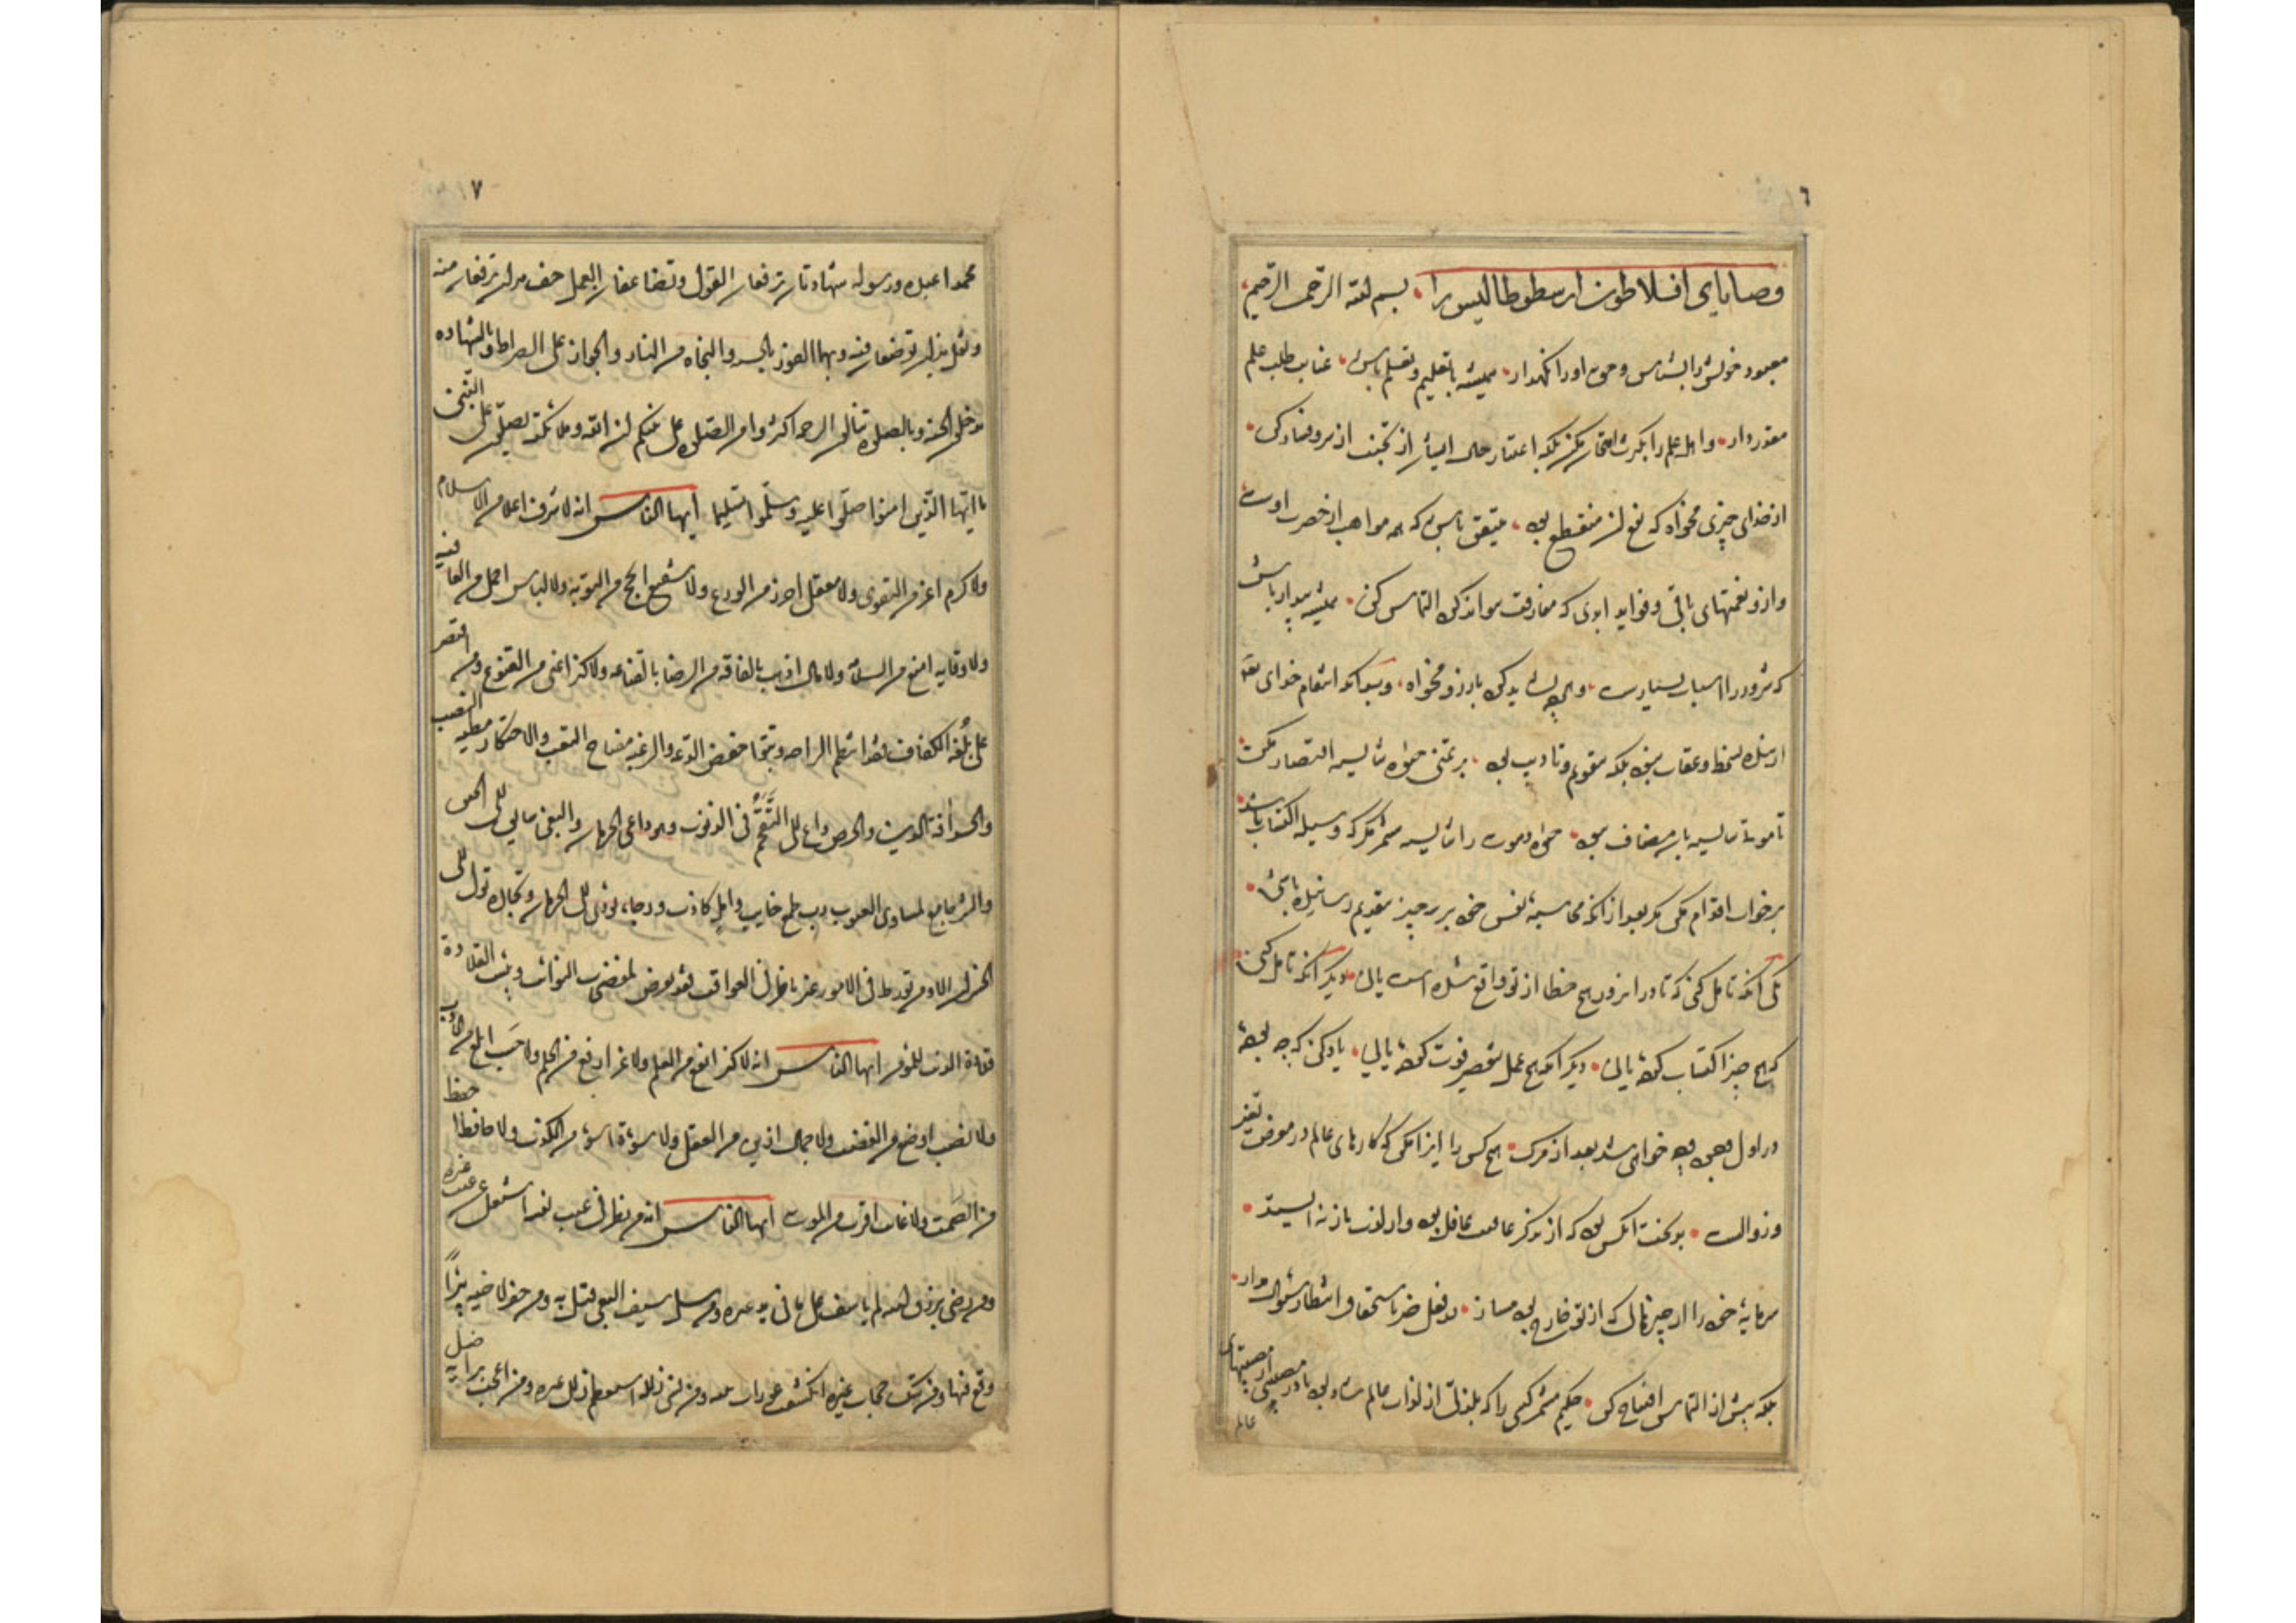 ١٦
وصایای افلاطون ارسطوطالیس را بسم الله الرحمن الرحیم
معبود خویش را بشناس و حق او را نگهدار همیشه با تعلیم و تعلم باش عنایت طلب علم
مقدر دار و اهل علم را بکثرت امتحان مکن بلکه اعتبار حال ایشان از تجنب از شر و فساد کن
از خدای چیزی مخواه که نفع آن منقطع بود متیقن باش که همه مواهب از حضرت اوست
و ازو نعمتهای باقی و فواید ابدی که مفارقت نتواند کرد التماس کن همیشه بیدار باش
که شرور را اسباب بسیارست و آنچه نشاید کرد بآرزو مخواه و بدانکه انتقام خدای تعالی
از بنده بسخط و عقاب نبود بلکه بتقویم و تأدیب بود بر تمنی حیوة شایسته اقتصار مکن
تا موت شایسته با آن مضاف نبود حیوة و موت را شایسته مشمر مگر که وسیله اکتساب باشد
بر خواب اقدام مکن مگر بعد از آنکه محاسبه نفس خود بر سه چیز بتقدیم رسانیده باشی
یکی آنکه تأمل کنی که تا در آن روز هیچ خطا از تو واقع شده است یا نی دیگر آنکه تأمل کنی
که هیچ چیز اکتساب کرده یا نی دیگر آنکه هیچ عمل بتقصیر فوت کرده یا نی یاد کن که چه بوده
در اول و چه خواهی شد بعد از مرگ هیچ کس را ایذا مکن که کارهای عالم در معرض تغیر
و زوالست بدبخت آنکس بود که از تذکر عاقبت غافل بود و از زلت باز نه ایستد
سرمایه خود را از چیزهائی که از تو خارج بود مساز در فعل خیر با مستحقان انتظار سؤال مدار
بلکه پیش از التماس افتتاح کن حکیم مشمر کسی را که بلذتی از لذات عالم شاد بود یا در مصیبتی از مصیبتهای
عالم
١٧
محمدا عبده ورسوله شهادتان ترفعان القول وتضاعفان العمل خف میزان ترفعان منه
وثقل میزان توضعان فیه وبهما الفوز بالجنة والنجاة من النار والجواز علی الصراط وبالشهادة
تدخلون الجنة وبالصلوة تنالون الرحمة اکثروا من الصلوة علی نبیکم ان الله وملائکته یصلون علی النبی
یا ایها الذین امنوا صلوا علیه وسلموا تسلیما ایها الناس انه لا شرف اعلا من الاسلام
ولا کرم اعز من التقوی ولا معقل احرز من الورع ولا شفیع انجح من التوبة ولا لباس اجمل من العافیة
ولا وقایة امنع من السلامة ولا مال اذهب بالفاقة من الرضا بالقناعة ولا کنز اغنی من القنوع ومن اقتصر
علی بلغة الکفاف فقد انتظم الراحة وتبوأ خفض الدعة والرغبة مفتاح التعب والاحتکار مطیة النصب
والحسد آفة الدین والحرص داع الی التقحم فی الذنوب وهو داعی الحرمان والبغی سایق الی الحین
والشره جامع لمساوی العیوب رب طمع خایب وامل کاذب ورجاء یؤدی الی الحرمان وتجارة تؤل الی
الخسران الا ومن تورط فی الامور غیر ناظر فی العواقب فقد تعرض لمفضحات النوائب وبئست القلادة
قلادة الذنب للمؤمن ایها الناس انه لا کنز انفع من العلم ولا عز ارفع من الحلم ولا حسب ابلغ من الادب
ولا نصب اوضع من الغضب ولا جمال ازین من العقل ولا سوءة اسوء من الکذب ولا حافظ احفظ
من الصمت ولا غائب اقرب من الموت ایها الناس انه من نظر فی عیب نفسه اشتغل عن عیب غیره
ومن رضی برزق الله لم یاسف علی ما فی ید غیره ومن سل سیف البغی قتل به ومن حفر لاخیه بئرا
وقع فیها ومن هتک حجاب غیره انکشف عورات بیته ومن نسی زلته استعظم زلل غیره ومن اعجب برایه ضل